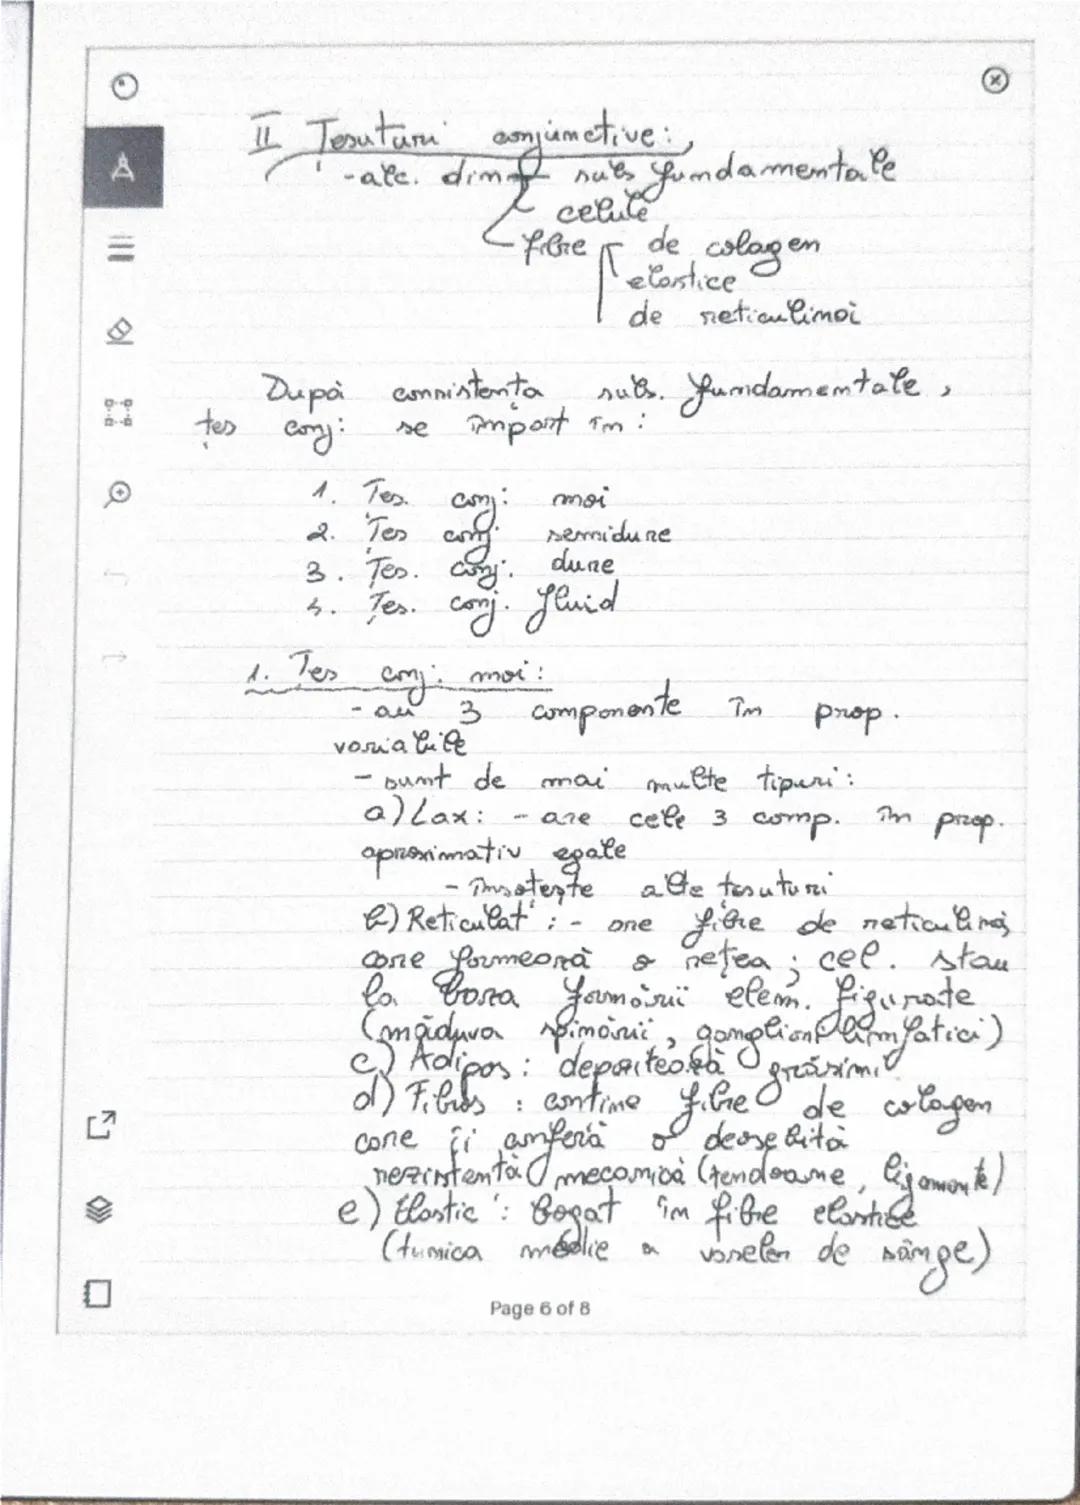 II Țesuturi conjunctive:
- alc. din subs fundamentale
celule
fibre de colagen
elastice
de reticulină
După consistența subs. fundamentale,
țes conj. se împart în:
1. Țes. conj. moi
2. Țes conj. semidure
3. Țes. conj. dure
4. Țes. conj. fluid
1. Țes conj. moi:
- au 3 componente în prop.
variabile
- sunt de mai multe tipuri:
a) Lax: - are cele 3 comp. în prop.
aproximativ egale
- însoțește alte țesuturi
b) Reticulat: - are fibre de reticulină,
care formează o rețea; cel. stau
la baza formării elem. figurate
(măduva spinării, ganglioni limfatici)
c) Adipos: depozitează grăsimi
d) Fibros: conține fibre de colagen
care îi conferă o deosebită
rezistență mecanică (tendoane, ligamente)
e) Elastic: bogat în fibre elastice
(tunica medie a vaselor de sânge)
Page 6 of 8